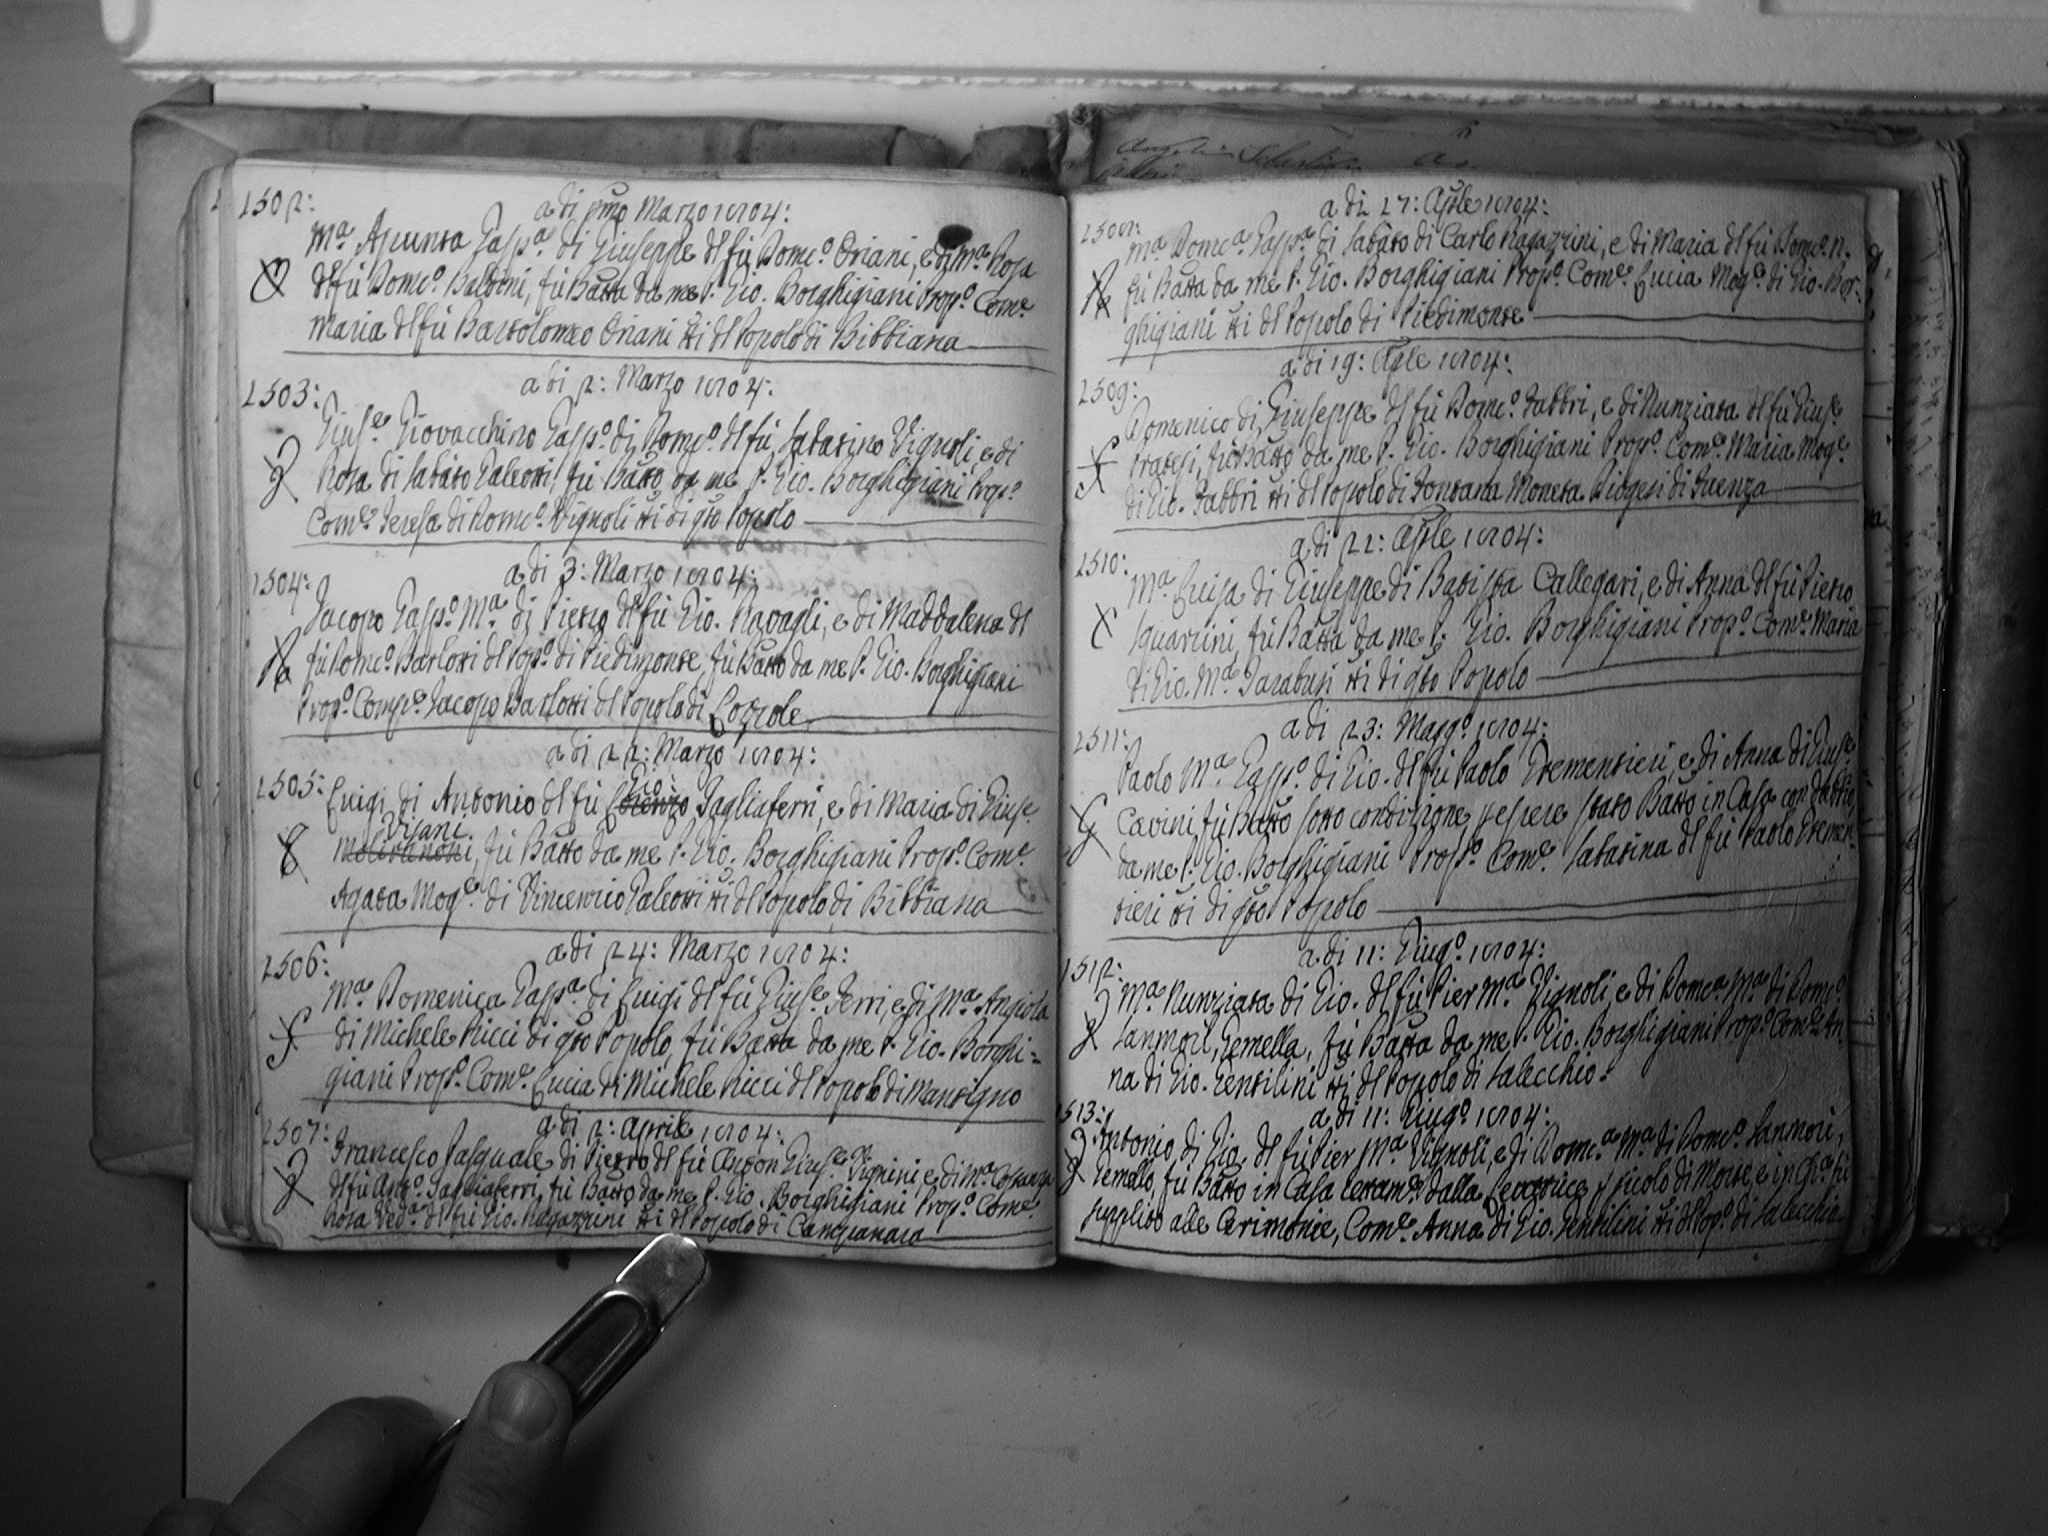 2502:
a di pmo Marzo 1804:
Mª Assunta Gaspª di Giuseppe dl fù Domcº Oriani, e di Mª Rosa
dl fù Domcº Baldini, fù Batta da me P. Gio. Borghigiani Propº Comᵉ
Maria dl fù Bartolomeo Oriani tti dl Popolo di Bibbiana
2503:
a di 2: Marzo 1804:
Giusᵉ Giovacchino Gaspº di Domcº dl fù Sabatino Vignoli e di
Rosa di Sabato Galeotti, fù Batto da me P. Gio. Borghigiani Propº
Comᵉ Teresa di Domcº Vignoli tti di qto Popolo
2504:
a di 3: Marzo 1804:
Jacopo Gaspº Mª di Pietro dl fù Gio. Ravagli, e di Maddalena dl
fù Domcº Barlotti dl Popº di Piedimonte, fù Batto da me P. Gio. Borghigiani
Propº Compᵉ Jacopo Barlotti dl Popolo di Lozzole
a di 22: Marzo 1804:
2505:
Gio:
Luigi di Antonio dl fù Lorenzo Tagliaferri, e di Maria di Giusᵉ
Visani
fù Batto da me P. Gio. Borghigiani Propº Comᵉ
Agata Mogᵉ di Vincenzio Galeotti tti dl Popolo di Bibbiana
a di 24: Marzo 1804:
2506:
Mª Domenica Gaspª di Luigi dl fù Giusᵉ Ferri, e di Mª Angiola
di Michele Ricci di qto Popolo, fù Batta da me P. Gio. Borghi=
giani Propº Comᵉ Lucia di Michele Ricci dl Popolo di Mantigno
a di 2: Aprile 1804:
2507:
Francesco Pasquale di Pietro dl fù Anton Giusᵉ Vignini, e di Mª Costanza
dl fù Antº Tagliaferri, fù Batto da me P. Gio. Borghigiani Propº Comᵉ
Rosa Vedª dl fù Gio. Ragazzini tti dl Popolo di Campanara
a di 17: Aple 1804:
2508:
Mª Domcª Gaspª di Sabato di Carlo Ragazzini, e di Maria dl fù Domcº N.
fù Batta da me P. Gio. Borghigiani Propº Comᵉ Lucia Mogᵉ di Gio. Bor-
ghigiani tti dl Popolo di Piedimonte
a di 19: Aple 1804:
2509:
Domenico di Giuseppe dl fù Domcº Fabbri, e di Nunziata dl fù Giusᵉ
Pratesi, fù Batto da me P. Gio. Borghigiani Propº Comᵉ Maria Mogᵉ
di Gio. Fabbri tti dl Popolo di Fontana Moneta Diogesi di Faenza
a di 22: Aple 1804:
2510:
Mª Luisa di Giuseppe di Batista Callegari, e di Anna dl fù Pietro
Squarcini, fù Batta da me P. Gio. Borghigiani Propº Comᵉ Maria
di Gio. Mª Parabusi tti di qto Popolo
a di 23: Maggº 1804:
2511:
Paolo Mª Gaspº di Gio. dl fù Paolo Trementieri, e di Anna di Giusᵉ
Cavini, fù Batto sotto condizione p essere stato Batto in Casa con dubbio,
da me P. Gio. Borghigiani Propº Comᵉ Sabatina dl fù Paolo Tremen-
tieri tti di qto Popolo
a di 11: Giugº 1804:
2512:
Mª Nunziata di Gio. dl fù Pier Mª Vignoli, e di Domcª Mª di Domcº
Sanmori, Gemella, fù Batta da me P. Gio. Borghigiani Propº Comᵉ An-
na di Gio. Gentilini tti dl Popolo di Salecchio.
a di 11: Giugº 1804:
2513:
Antonio di Gio. dl fù Pier Mª Vignoli, e di Domcª Mª di Domcº Sanmori,
Gemello, fù Batto in Casa certamᵉ dalla Levatrice p picolo di Morte, e in Chª fù
supplito alle Cerimonie, Comᵉ Anna di Gio. Gentilini tti dl Popº di Salecchio